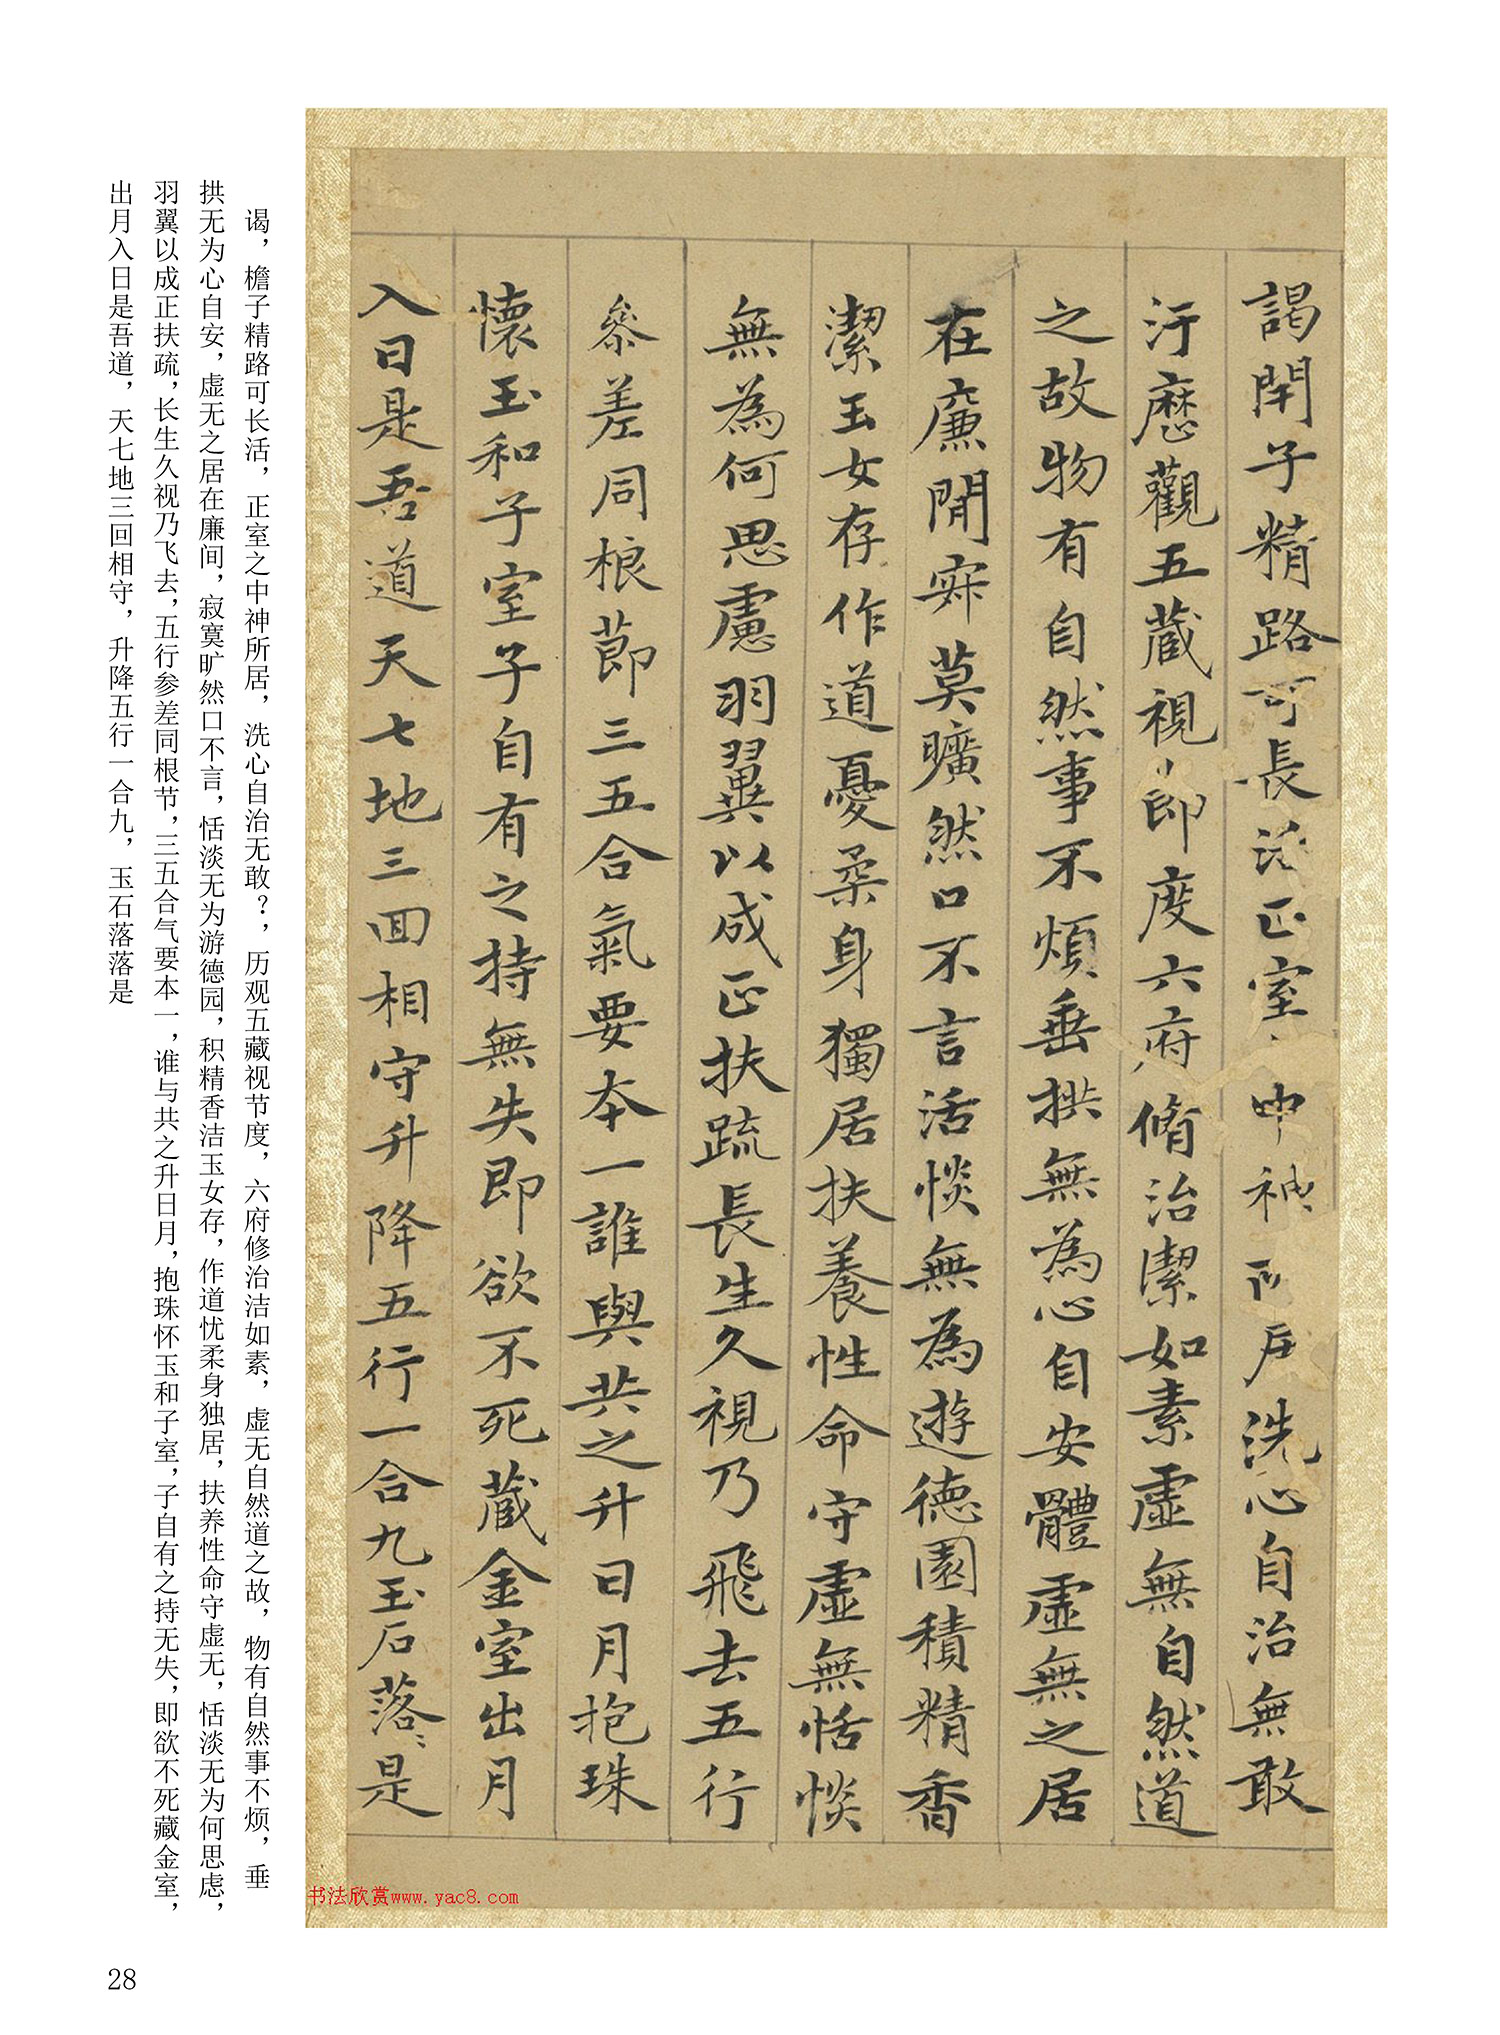 謁閇子精路可長活正室之中神所居洗心自治無敢
汙歷觀五藏視節度六府脩治潔如素虛無自然道
之故物有自然事不煩垂拱無為心自安體虛無之居
在廉閒寂莫曠然口不言活惔無為遊德園積精香
潔玉女存作道憂柔身獨居扶養性命守虛無恬惔
無為何思慮羽翼以成正扶疏長生久視乃飛去五行
參差同根節三五合氣要本一誰與共之升日月抱珠
懷玉和子室子自有之持無失即欲不死藏金室出月
入日是吾道天七地三回相守升降五行一合九玉石落〻是
谒，檐子精路可长活，正室之中神所居，洗心自治无敢？，历观五藏视节度，六府修治洁如素，虚无自然道之故，物有自然事不烦，垂
拱无为心自安，虚无之居在廉间，寂寞旷然口不言，恬淡无为游德园，积精香洁玉女存，作道忧柔身独居，扶养性命守虚无，恬淡无为何思虑，
羽翼以成正扶疏，长生久视乃飞去，五行参差同根节，三五合气要本一，谁与共之升日月，抱珠怀玉和子室，子自有之持无失，即欲不死藏金室，
出月入日是吾道，天七地三回相守，升降五行一合九，玉石落落是
书法欣赏www.yac8.com
28